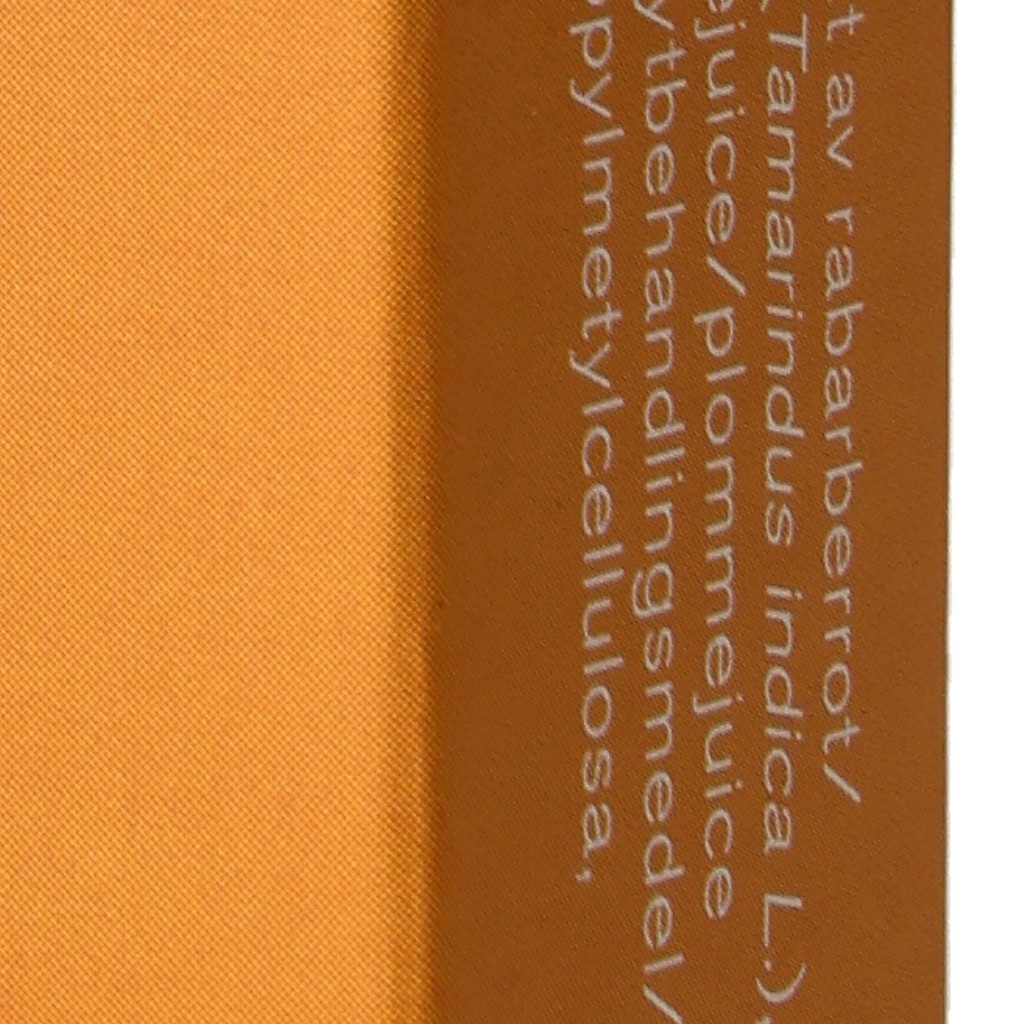 av rabarberrot/
Tamarindus indica L.),
ejuice/plommejuice
ytbehandlingsmedel/
opylmetylcellulosa,